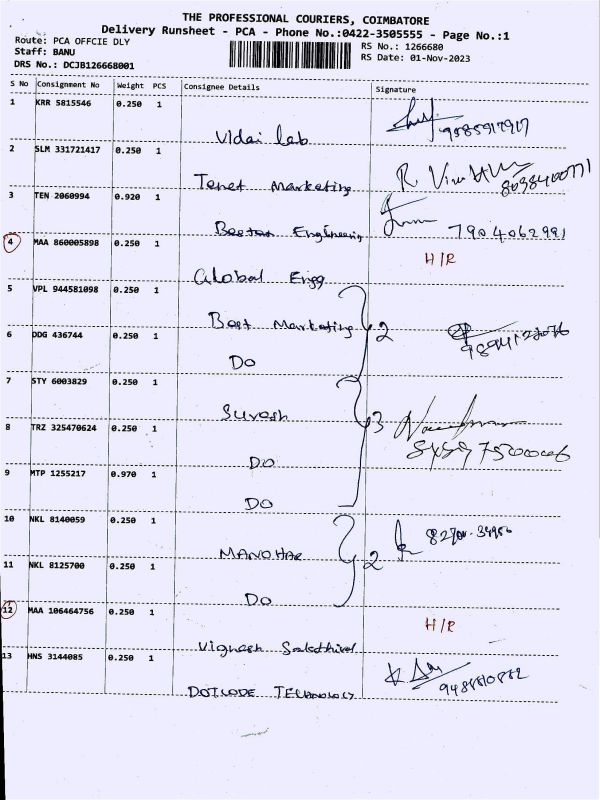 THE PROFESSIONAL COURIERS, COIMBATORE
Delivery Runsheet - PCA - Phone No.:0422-3505555 - Page No.:1
Route: PCA OFFCIE DLY
RS No.: 1266680
Staff: BANU
RS Date: 01-Nov-2023
DRS No.: DCJB126668001
S No Consignment No Weight PCS Consignee Details Signature
1 KRR 5815546 0.250 1
Vidai Lab
2 SLM 331721417 0.250 1
Tenet Marketing R.
3 TEN 2060994 0.920 1
Engineering 7904062991
4 MAA 860005898 0.250 1 H/R
Global Engg
5 VPL 944581098 0.250 1
Best Marketing 2
6 DDG 436744 0.250 1
DO
7 STY 6003829 0.250 1
Suresh 3
8 TRZ 325470624 0.250 1
DO
9 MTP 1255217 0.970 1
DO
10 NKL 8140059 0.250 1
MANOHAR 2
11 NKL 8125700 0.250 1
DO
12 MAA 106464756 0.250 1 H/R
Vignesh Sakthivel
13 HNS 3144085 0.250 1
DOTCODE TECHNOLOGY